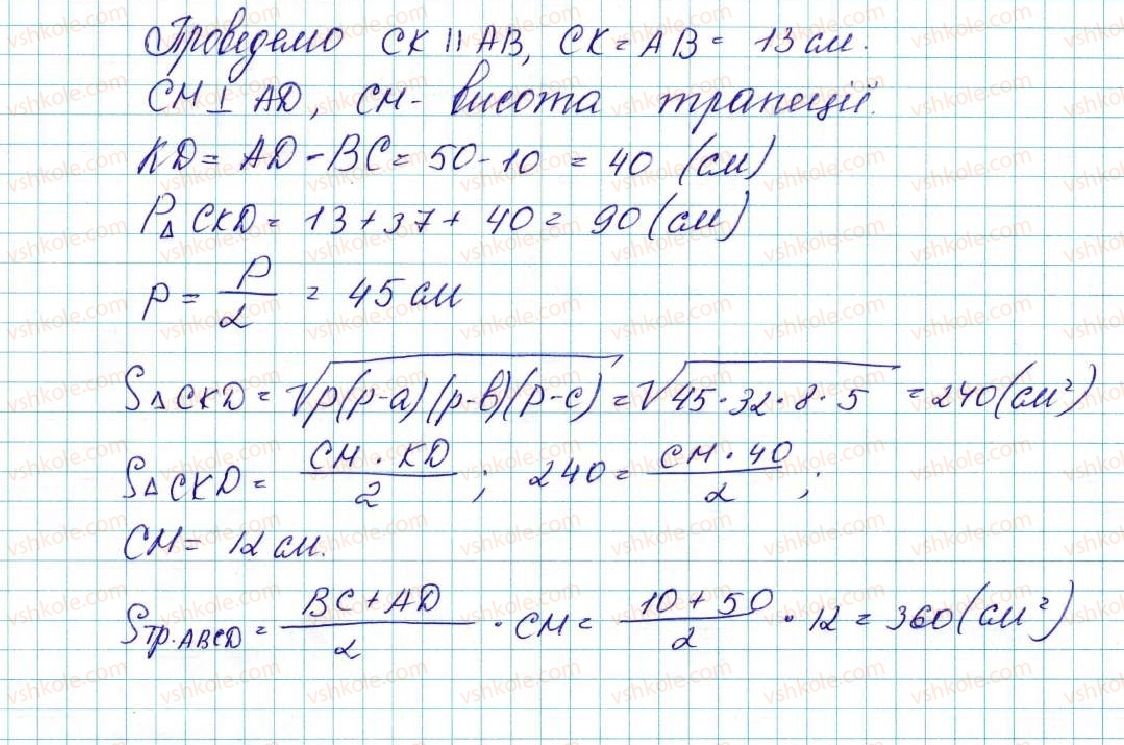 Проведемо CK || AB, CK = AB = 13 см.
CM ⊥ AD, CM - висота трапеції.
KD = AD - BC = 50 - 10 = 40 (см)
P△ CKD = 13 + 37 + 40 = 90 (см)
p = P/2 = 45 см
S△ CKD = √p(p-a)(p-b)(p-c) = √45·32·8·5 = 240 (см²)
S△ CKD = CM · KD / 2 ; 240 = CM · 40 / 2 ;
CM = 12 см.
Sтр.ABCD = BC + AD / 2 · CM = 10 + 50 / 2 · 12 = 360 (см²)